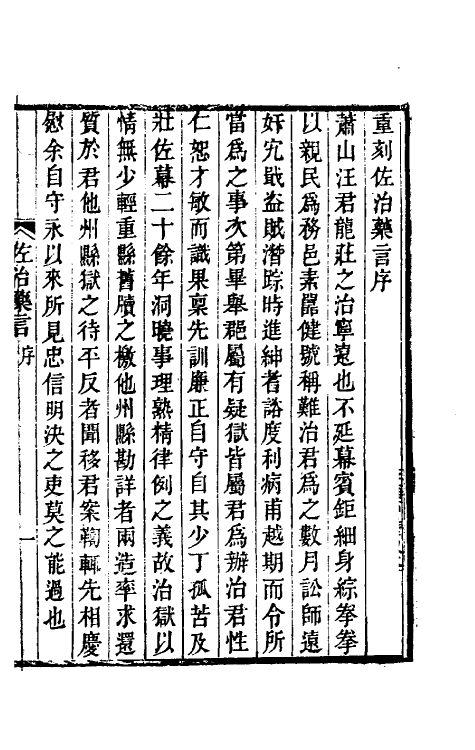 重刻佐治藥言序
蕭山汪君龍莊之治寧遠也不延幕賓鉅細身綜拳拳
以親民爲務邑素嚚健號稱難治君爲之數月訟師遠
奸宄戢盜賊潛踪時進紳耆諮度利病甫越期而令所
當爲之事次第畢舉郡屬有疑獄皆屬君爲辦治君性
仁恕才敏而識果稟先訓廉正自守自其少丁孤苦及
壯佐幕二十餘年洞曉事理熟精律例之義故治獄以
情無少輕重縣舊牘之檄他州縣勘詳者兩造率求還
質於君他州縣獄之待平反者聞移君案鞫輒先相慶
慰余自守永以來所見忠信明決之吏莫之能過也
佐治藥言 序 一